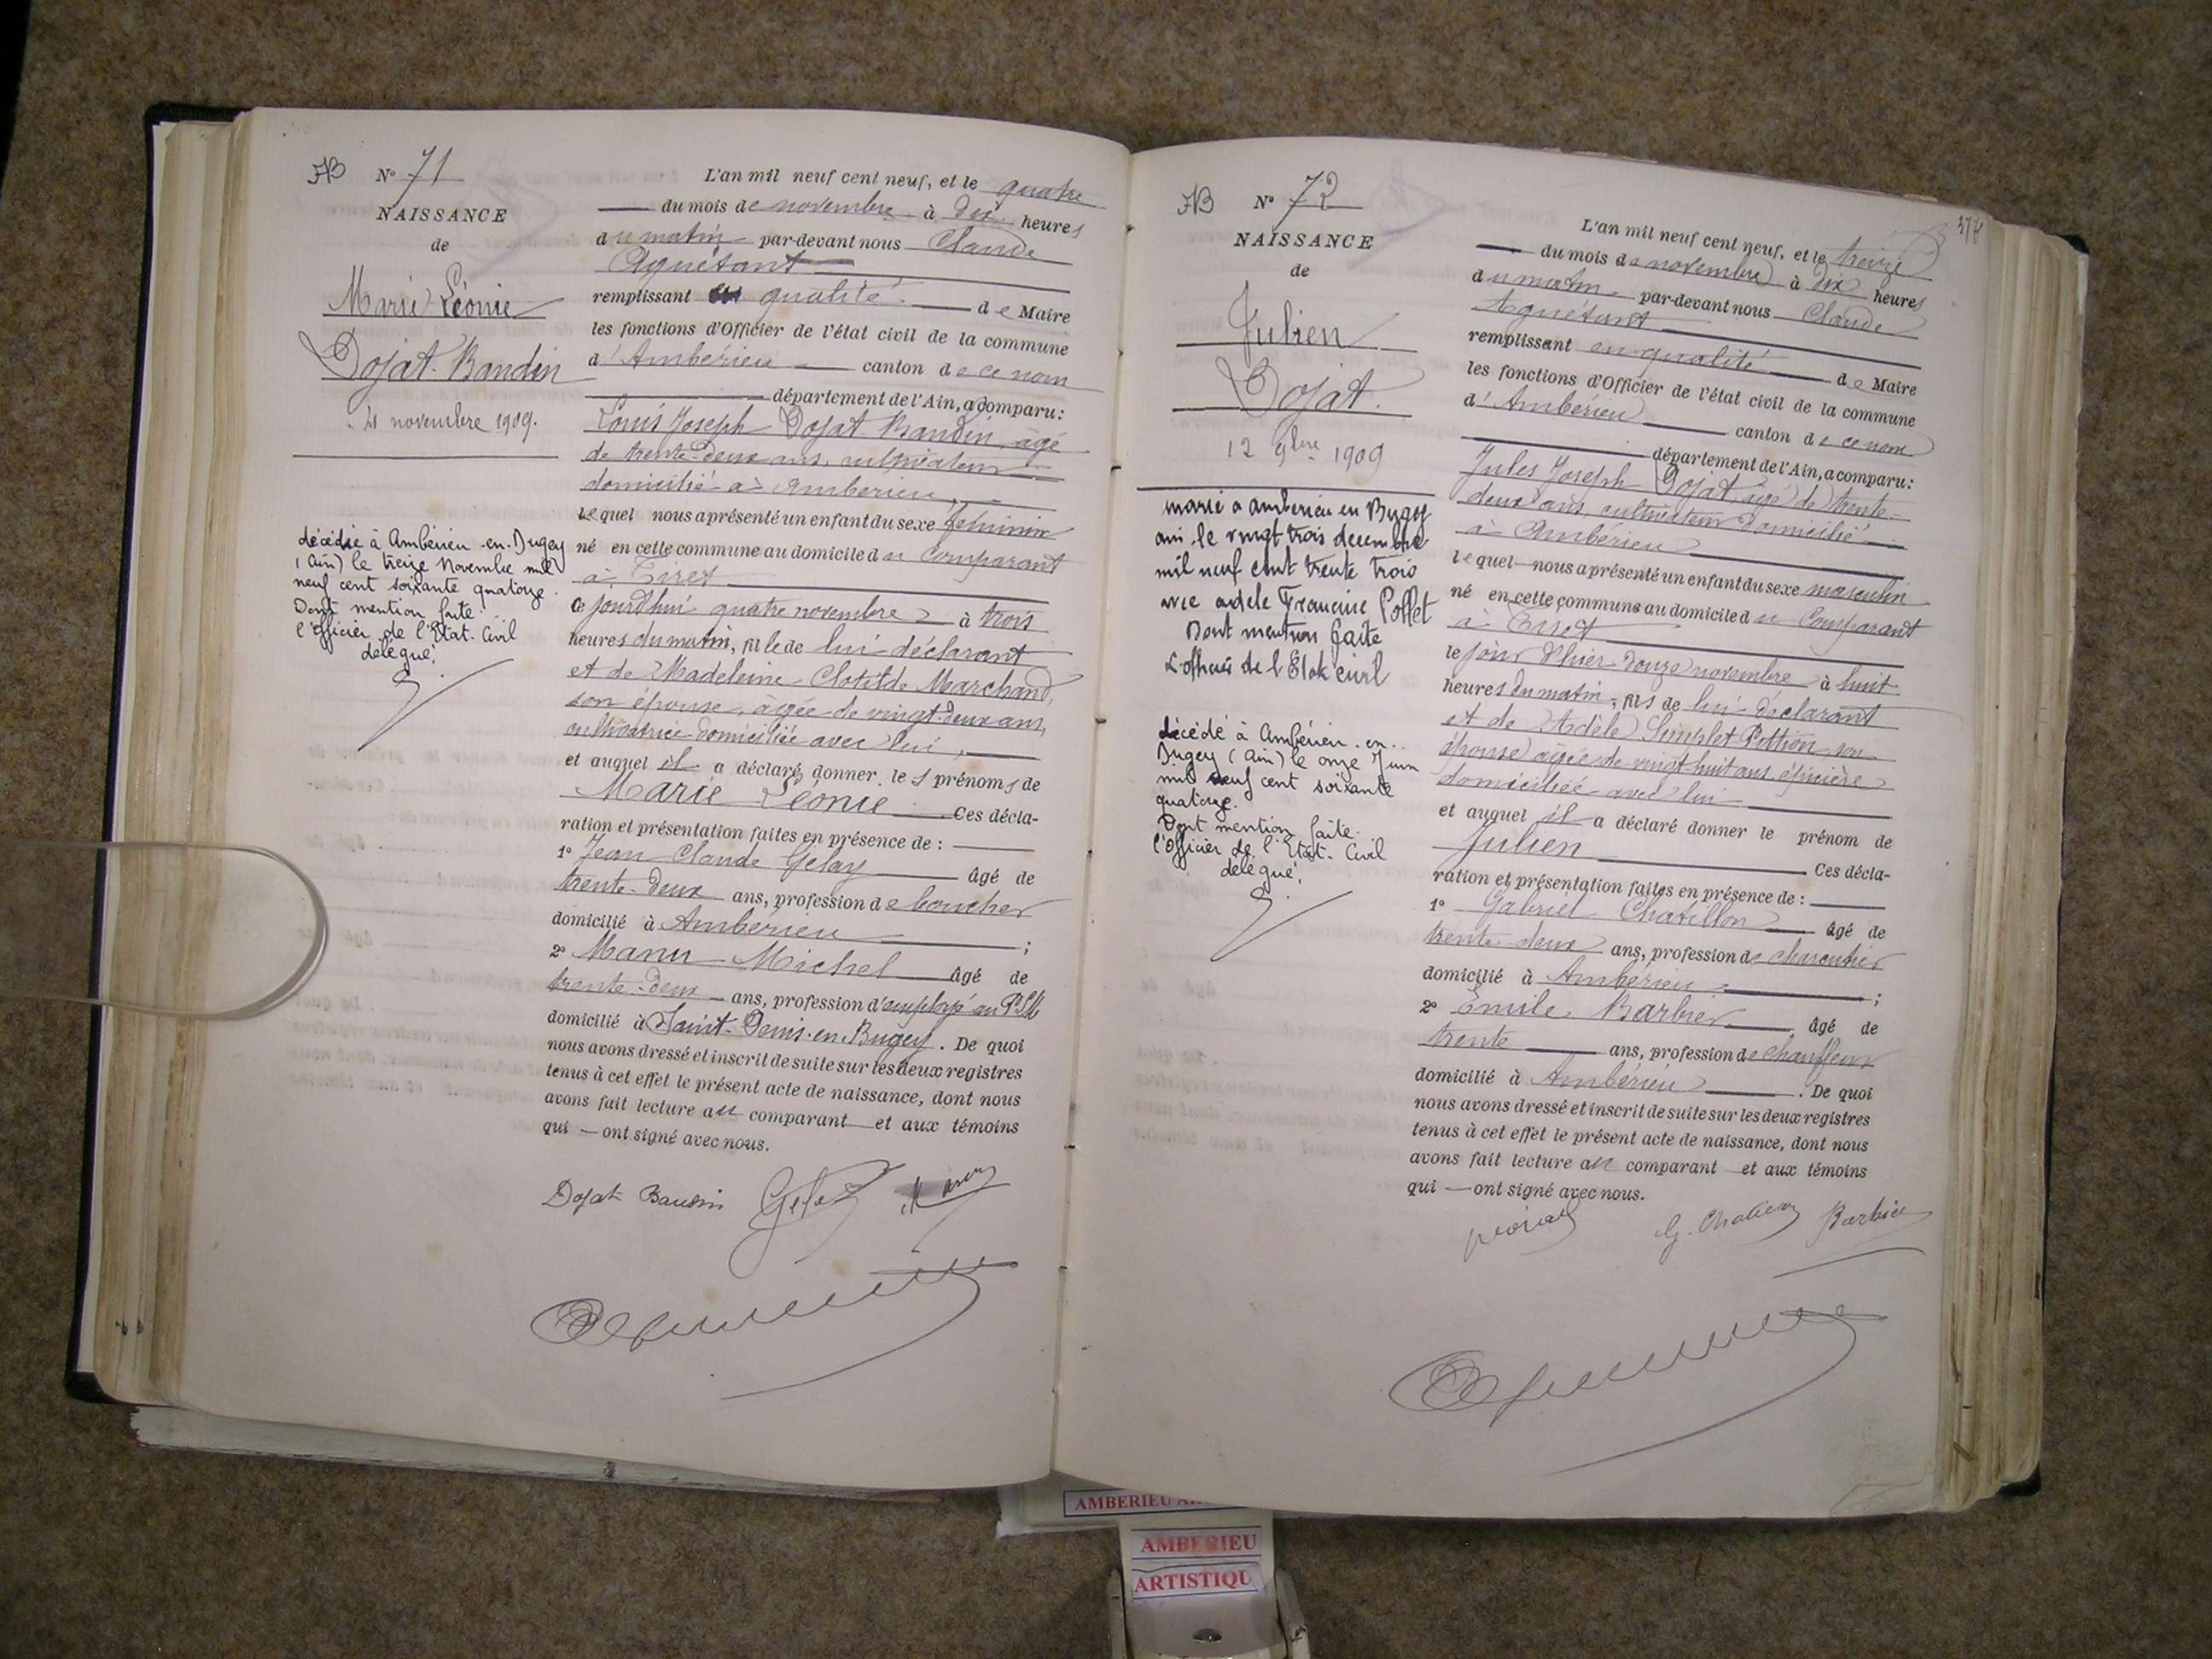 N° 71
NAISSANCE
de
Marie Léonie
Dojat-Baudin
4 novembre 1909.
décédée à Ambérieu-en-Bugey
(Ain) le treize Novembre mil
neuf cent soixante quatorze.
Dont mention faite.
l'Officier de l'Etat-Civil
délégué,
L'an mil neuf cent neuf, et le quatre
du mois de novembre à dix heures
du matin par-devant nous Claude
Aguétant
remplissant en qualité de Maire
les fonctions d'Officier de l'état civil de la commune
d'Ambérieu canton de ce nom
département de l'Ain, a comparu:
Louis Joseph Dojat-Baudin, âgé
de trente-deux ans, cultivateur
domicilié à Ambérieu,
lequel nous a présenté un enfant du sexe féminin
né en cette commune au domicile du comparant
à Tiret
ce jourd'hui quatre novembre à trois
heures du matin, fille de lui déclarant
et de Madeleine Clotilde Marchand,
son épouse, âgée de vingt-deux ans,
cultivatrice domiciliée avec lui,
et auquel il a déclaré donner les prénoms de
Marie Léonie Ces décla-
ration et présentation faites en présence de :
1° Jean Claude Gelay âgé de
trente-deux ans, profession de boucher
domicilié à Ambérieu ;
2° Manu Michel âgé de
trente-deux ans, profession d'employé au PLM
domicilié à Saint-Denis-en-Bugey. De quoi
nous avons dressé et inscrit de suite sur les deux registres
tenus à cet effet le présent acte de naissance, dont nous
avons fait lecture au comparant et aux témoins
qui ont signé avec nous.
Dojat Baudin
N° 72
NAISSANCE
de
Julien
Dojat.
12 9bre 1909
marié a ambérieu en Bugey
ain le vingt trois decembre
mil neuf cent trente trois
avec adele Francine Pollet
Dont mention faite
L'officier de l'Etat civil
décédé à Ambérieu-en-
Bugey (Ain) le onze Juin
mil neuf cent soixante
quatorze.
Dont mention faite.
l'Officier de l'Etat-Civil
délégué,
374
L'an mil neuf cent neuf, et le treize
du mois de novembre à dix heures
du matin par-devant nous Claude
Aguétant
remplissant en qualité de Maire
les fonctions d'Officier de l'état civil de la commune
d'Ambérieu canton de ce nom
département de l'Ain, a comparu:
Jules Joseph Dojat âgé de trente-
deux ans, cultivateur domicilié
à Ambérieu
lequel nous a présenté un enfant du sexe masculin
né en cette commune au domicile du comparant
à Tiret
le jour d'hier douze novembre à huit
heures du matin, fils de lui déclarant
et de Adèle Simplet Pittion, son
épouse âgée de vingt-huit ans, épicière
domiciliée avec lui
et auquel il a déclaré donner le prénom de
Julien Ces décla-
ration et présentation faites en présence de :
1° Gabriel Chatillon âgé de
trente-deux ans, profession de charcutier
domicilié à Ambérieu ;
2° Emile Barbier âgé de
trente ans, profession de chauffeur
domicilié à Ambérieu. De quoi
nous avons dressé et inscrit de suite sur les deux registres
tenus à cet effet le présent acte de naissance, dont nous
avons fait lecture au comparant et aux témoins
qui ont signé avec nous.
Barbier
AMBERIEU
AMBERIEU
ARTISTIQU